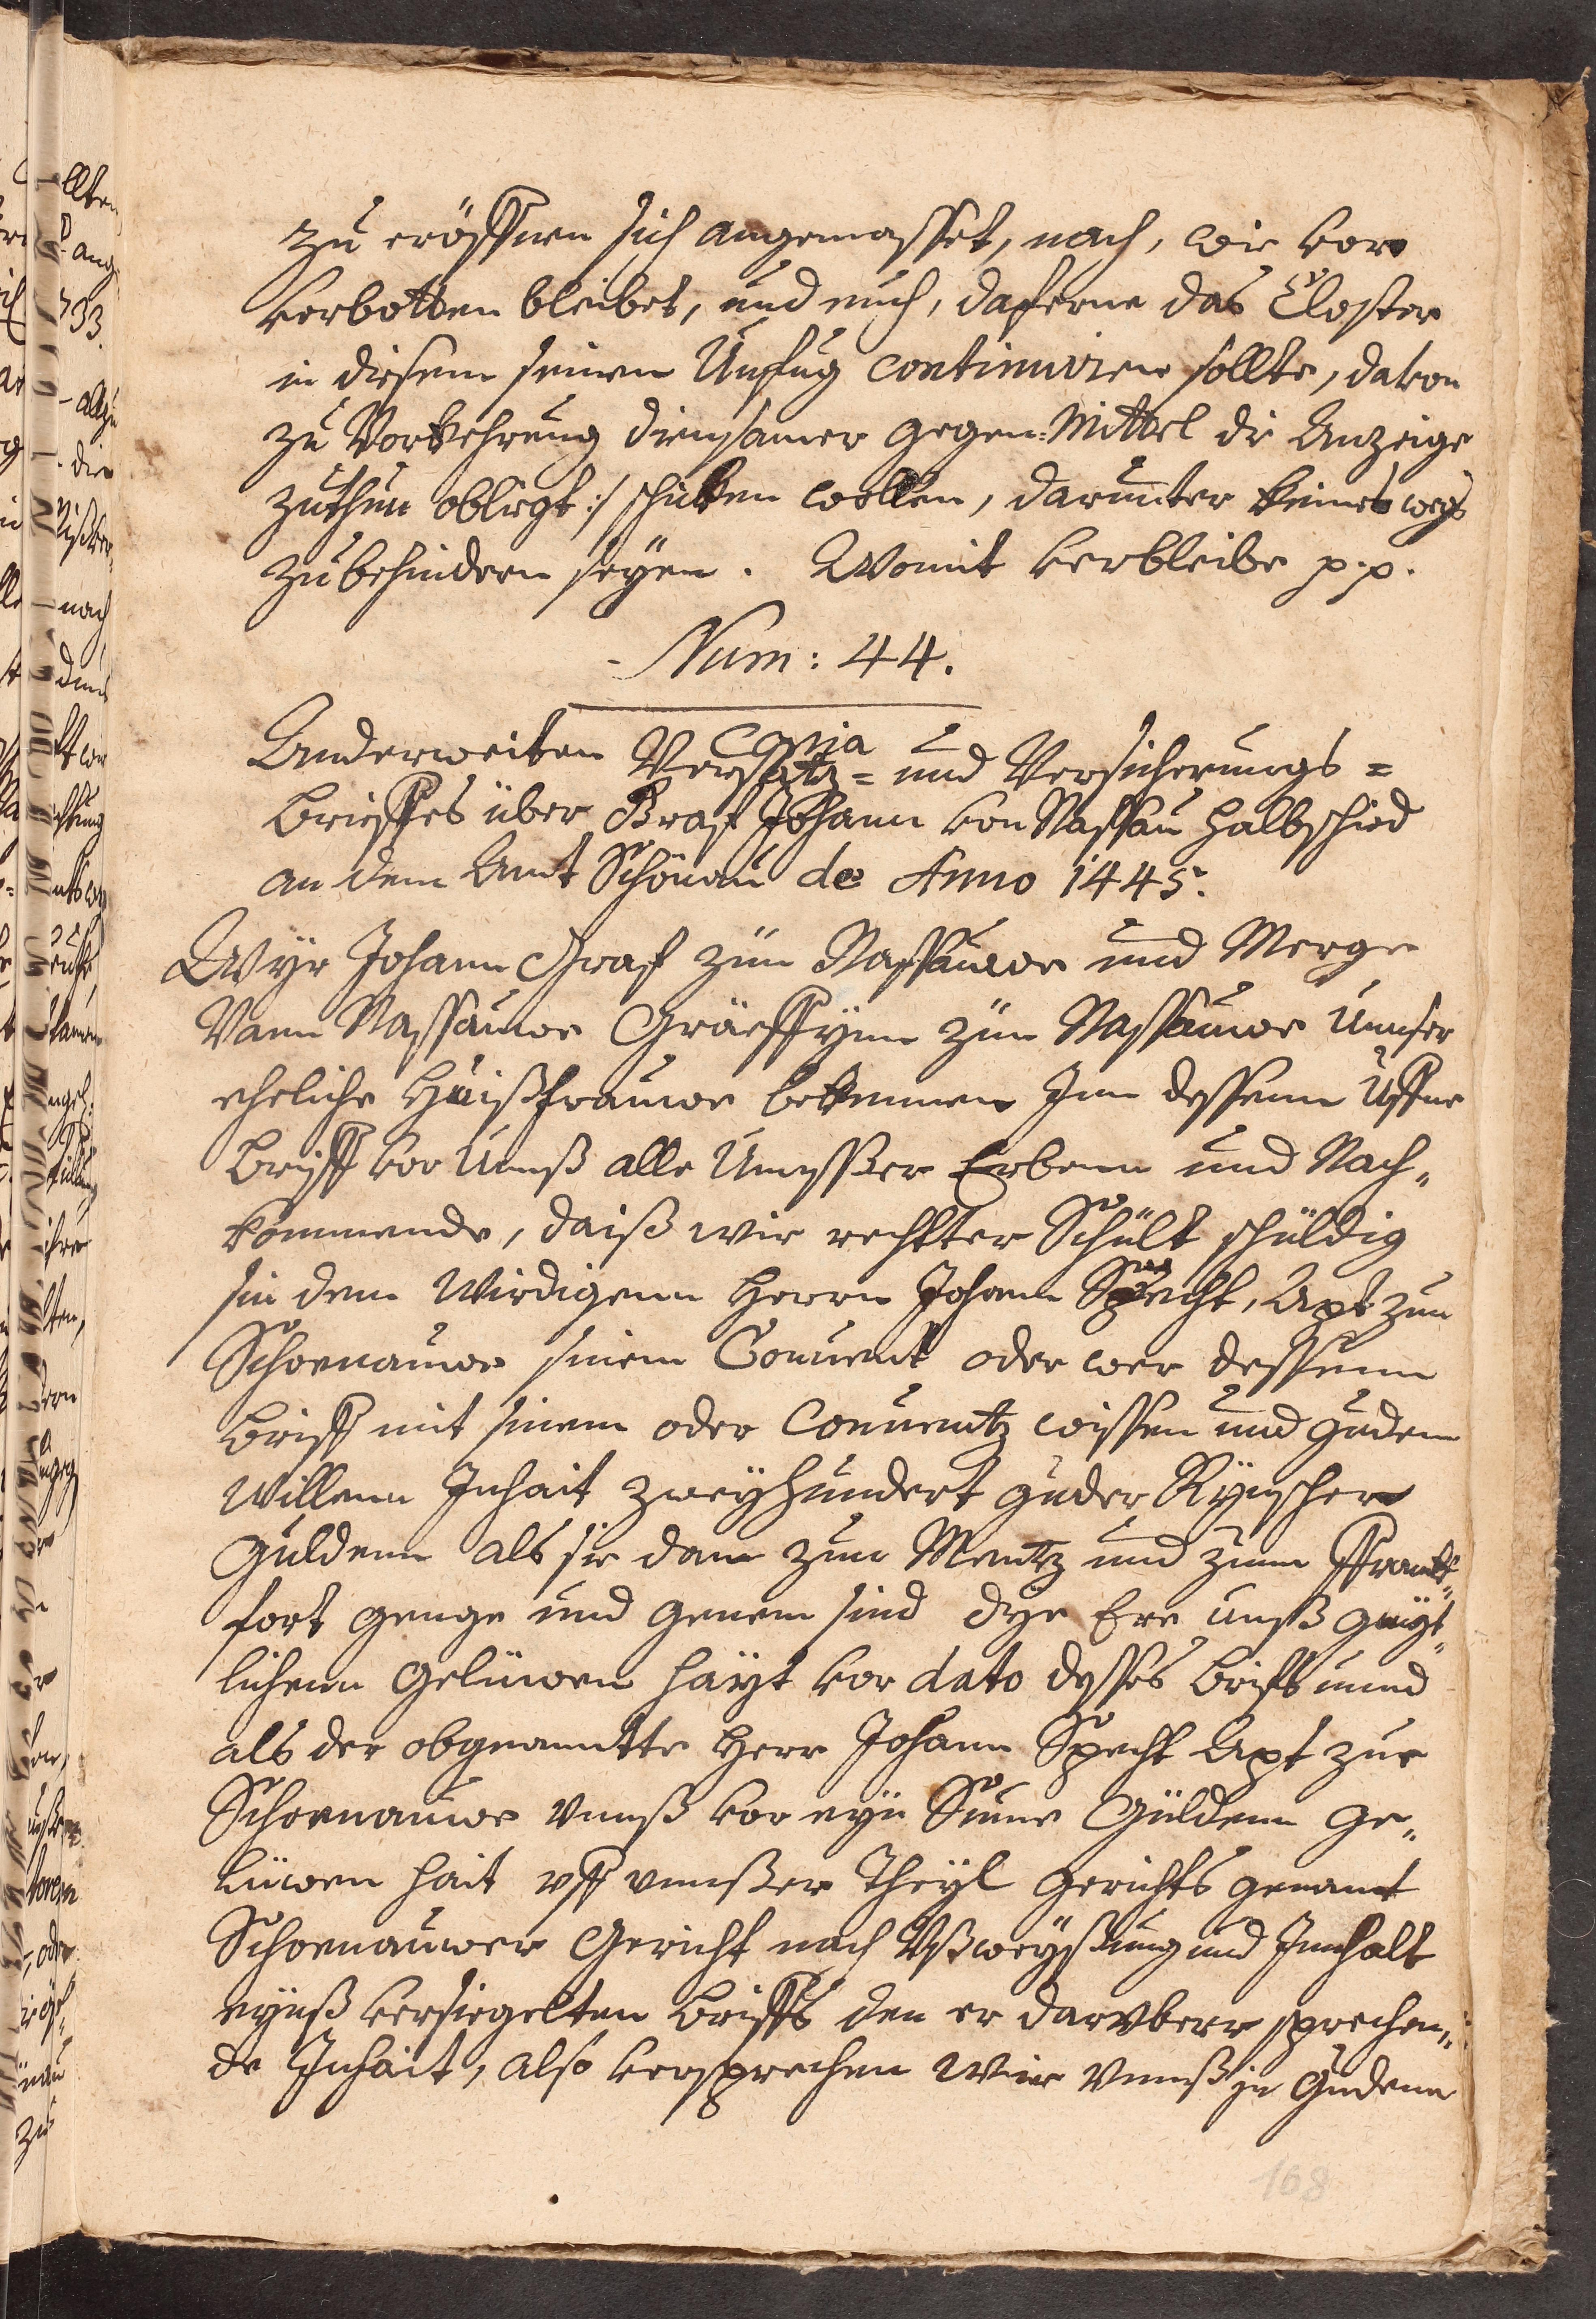 zu eröffnen sich angemasset, nach, wie vor
verbotten bleibet, und euch, daferne das Closter
in diesem seinen Unfug continuiren sollte, davon
zu Vorkehrung diensamer gegen-Mittel die Anzeige
zuthun obliegt :/ schicken wollen, darunter keines wegs
zubehindern seyen. Womit verbleibe p. p.
Num: 44.
Copia
Anderweiten Versatz= und Versicherungs=
Brieffes über Graf Johann von Nassau halbschied
an dem Amt Schönau de Anno 1445.
Wyr Johann Graf zun Nassauwe und Merge
Vann Nassauwe Gräeffynn zun Nassauwe Unnser
eheliche Haußfrauwe bekennen Inn dessenn Uffne
Bryff vor Unnß alle Unnsßer Erbenn und Nach„
kommende, daiß wir rechtter Schült schuldig
sin dem Wirdigenn Herrn Johann Specht, Apt zun
Schoenauwe sinem Conuent oder wer dessenn
Briff mit sinem oder Conuentz wissen und guden
Willenn Inhait zweyhundert guder Rynscher
Guldenn als sie dann zun Mentz und zunn Ffranck„
fort genge und genem sind dye Ere unß guyt„
lichenn geluwen häyt vor dato dysses Briffs unnd
als der obgenanntte Herr Johann Specht Apt zur
Schoenauwe vnnß vor eyn Sume Güldenn ge„
luwen hait vff vnnßer Theyl gerichts genant
Schoenauwer Gericht nach Vßweyßung und Innhalt
eynß versiegelten Briffs den er darvberr sprechen„
de Inhait, also versprechen Wir Vnnß in Gudenn
168